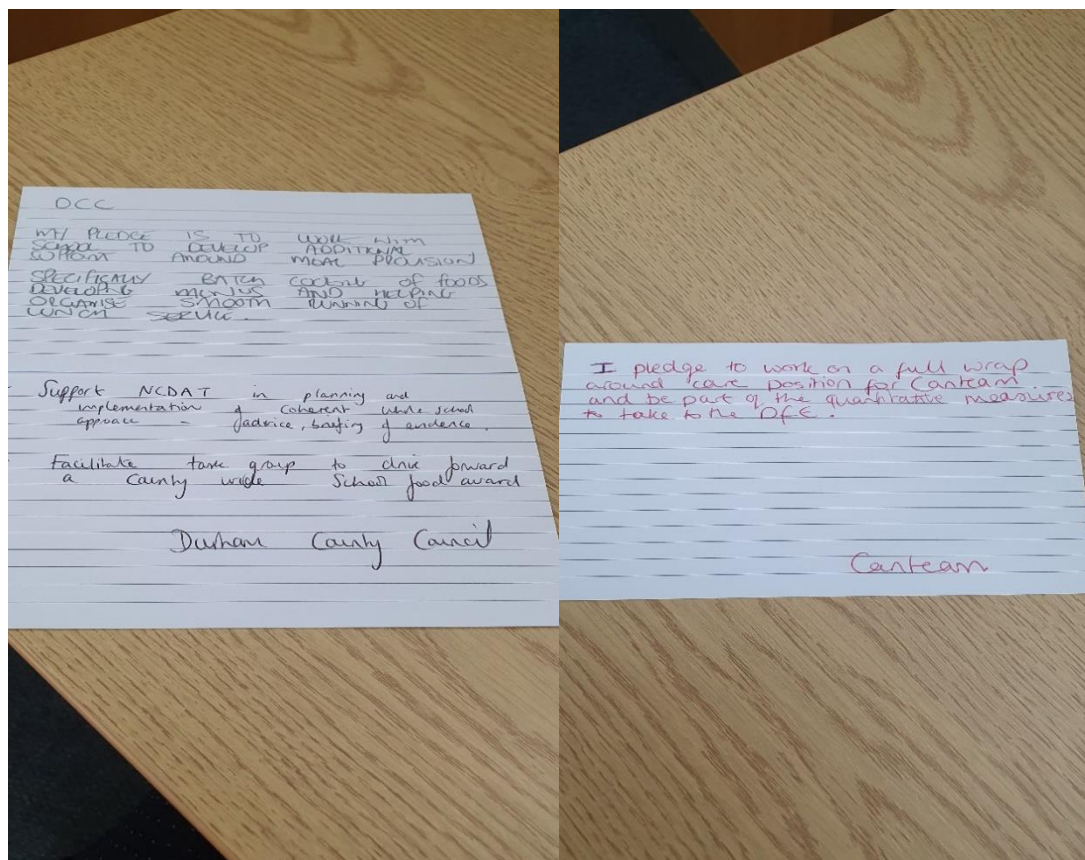 DCC
MY PLEDGE IS TO WORK WITH
SCHOOL TO DEVELOP ADDITIONAL
SUPPORT AROUND MEAL PROVISION
SPECIFICALLY BATCH COOKING OF FOODS
DEVELOPING MENUS AND HELPING
ORGANISE SMOOTH RUNNING OF
LUNCH SERVICE.
Support NCDAT in planning and
implementation of coherent whole school
approach - advice, briefing of evidence.
Facilitate task group to drive forward
a County wide School food award
Durham County Council
I pledge to work on a full wrap
around care position for Canteam
and be part of the quantitative measures
to take to the DfE.
Canteam